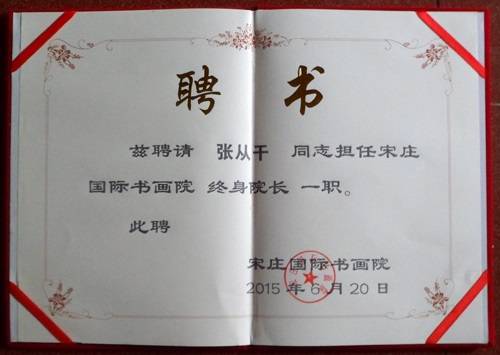 聘书
兹聘请 张从干 同志担任宋庄
国际书画院 终身院长 一职。
此聘
宋庄国际书画院
2015年6月20日